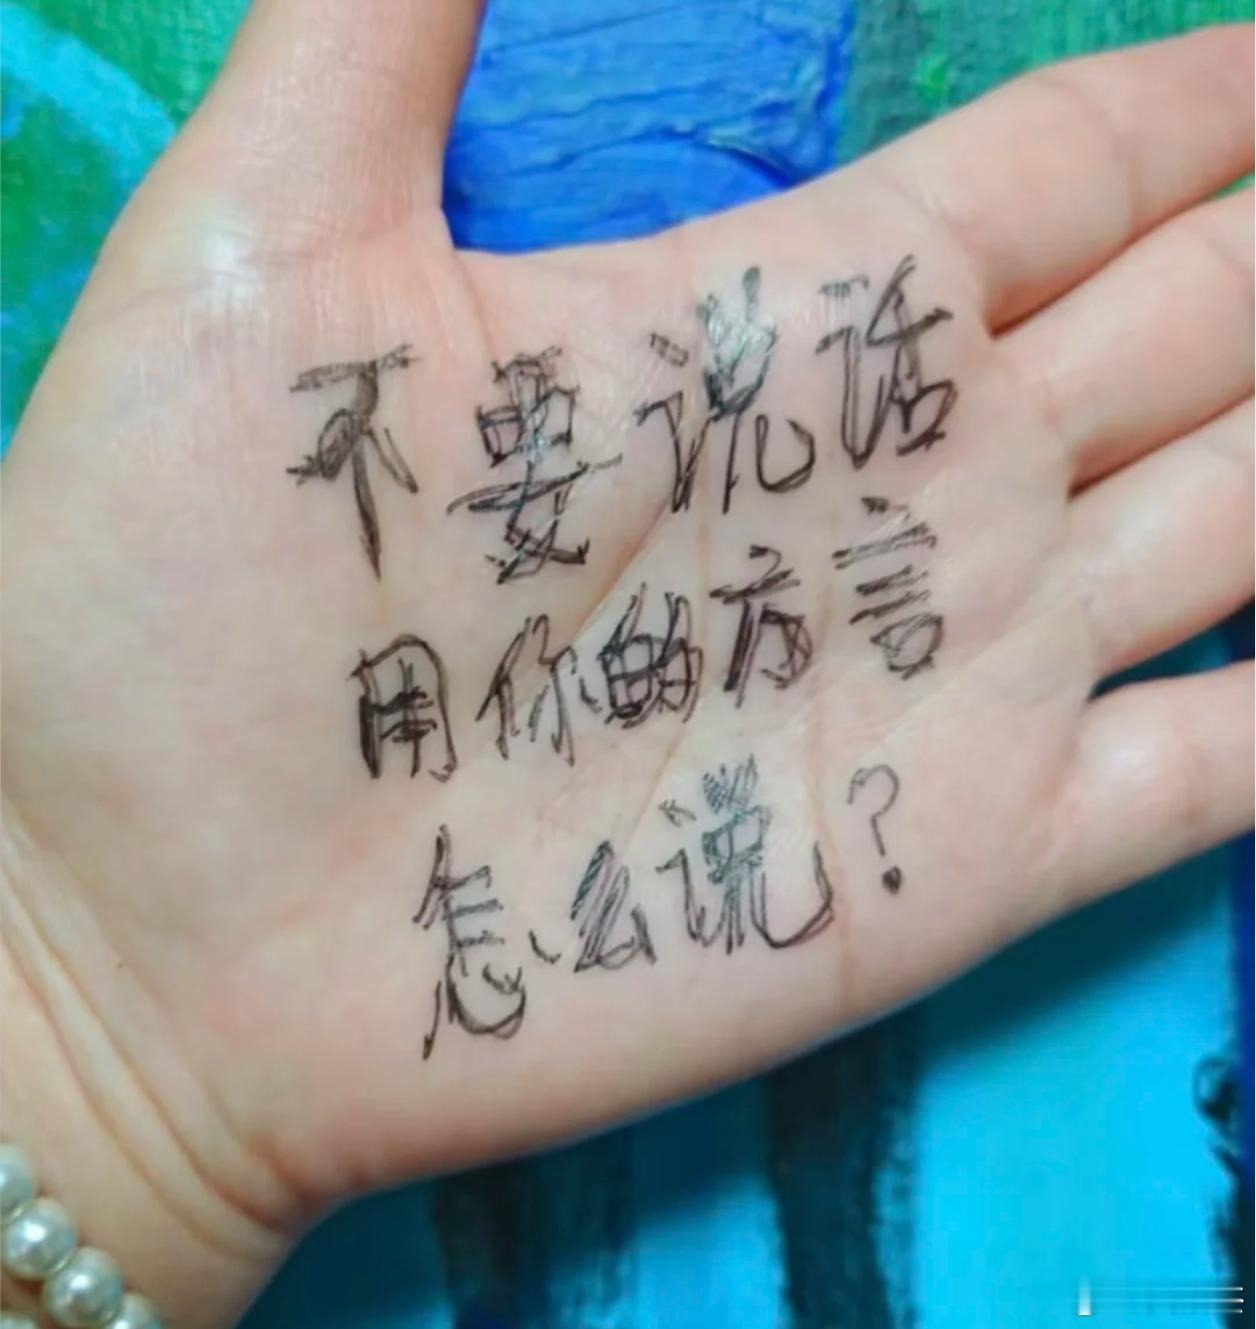 不要说话
用你的方言
怎么说？